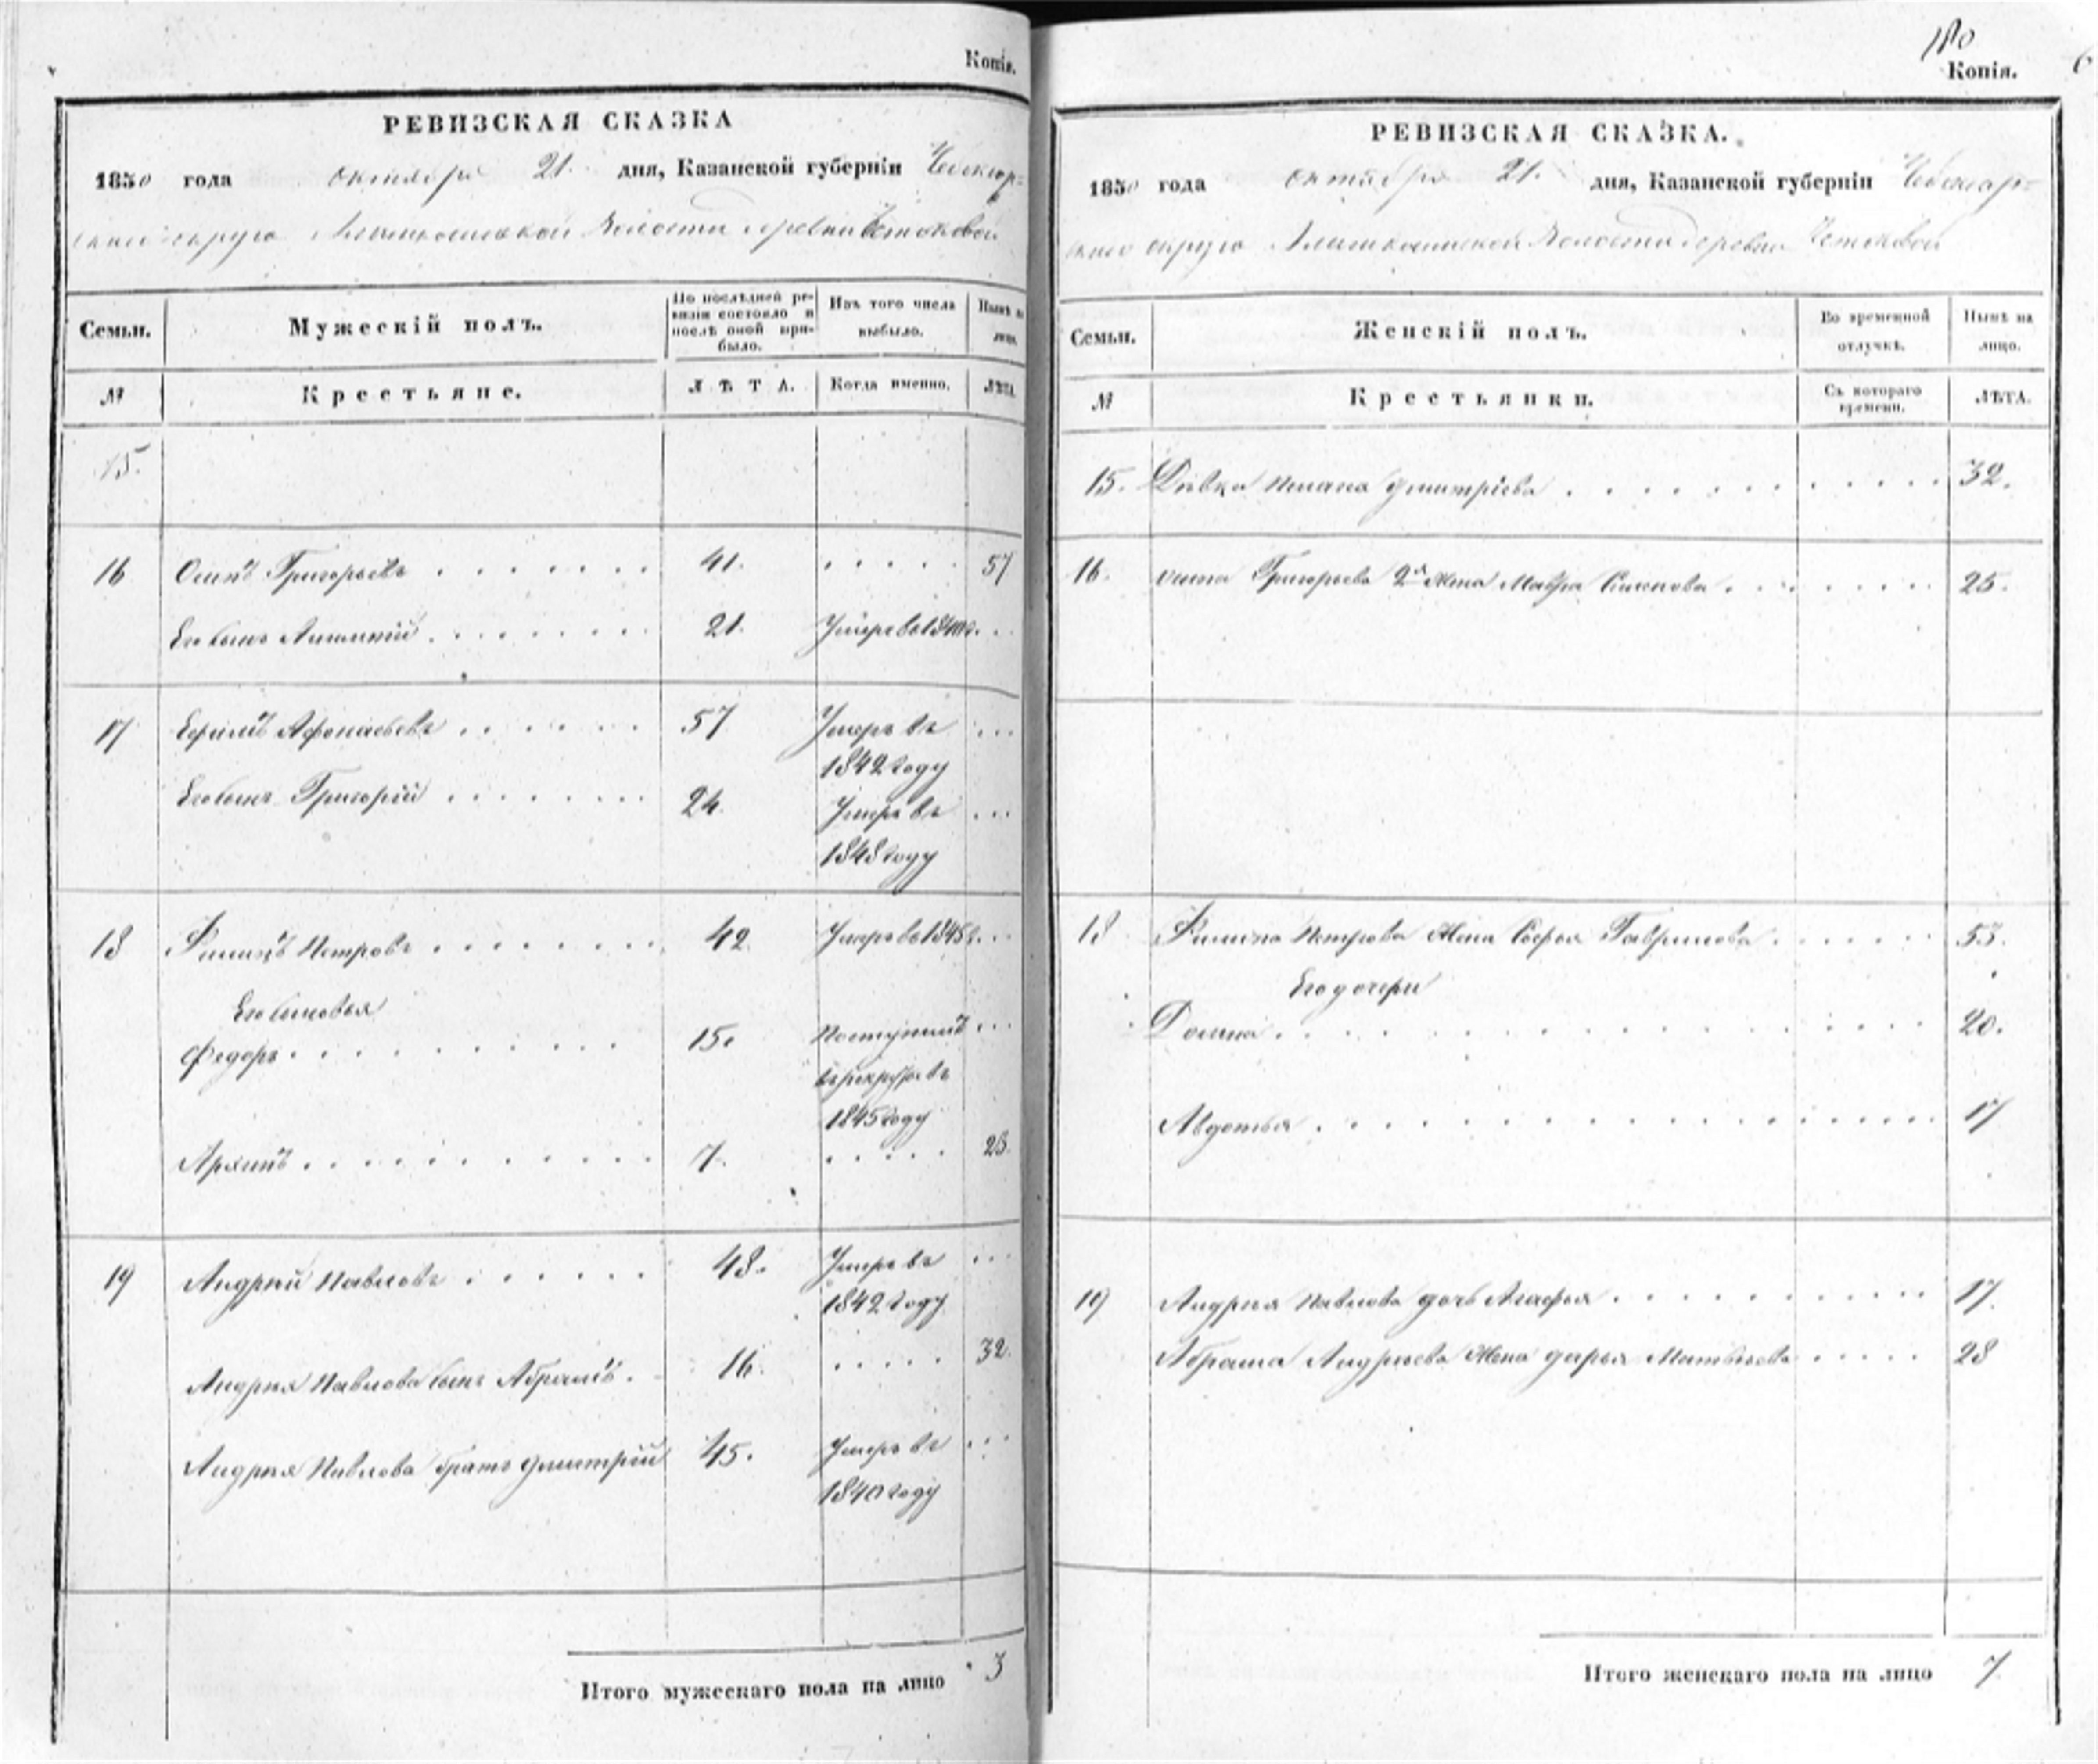 Копія.
РЕВИЗСКАЯ СКАЗКА
1850 года октября 21. дня, Казанской губерніи Чебоксар=
скаго округа волости деревни
Семьи. Мужескій полъ. По послѣдней ревизіи состояло и послѣ оной прибыло. Изъ того числа выбыло. Нынѣ на лицо.
№ Крестьяне. ЛѢТА. Когда именно. ЛѢТА.
15.
16 Осипъ Григорьевъ 41. 57
Его сынъ 21. Умеръ въ
17 Ефимъ Афонасьевъ 57 Умеръ въ
1842 году
Его сынъ Григорій 24. Умеръ въ
1848 году
18 Филипъ Петровъ 42 Умеръ въ 1845
Его сыновья
Федоръ 15. Поступилъ
въ рекруты въ
1845 году
Архипъ 7. 23.
19 Андрей Павловъ 48. Умеръ въ
1842 году
Андрея Павлова сынъ Абрамъ 16. 32.
Андрея Павлова братъ Дмитрій 45. Умеръ въ
1840 году
Итого мужескаго пола на лицо 3
180
Копія.
6
РЕВИЗСКАЯ СКАЗКА.
1850 года октября 21. дня, Казанской губерніи Чебоксар=
скаго округа волости деревни
Семьи. Женскій полъ. Во временной отлучкѣ. Нынѣ на лицо.
№ Крестьянки. Съ котораго времени. ЛѢТА.
15. Дѣвка Дмитріева 32.
16. Осипа Григорьева 2я жена Мавра Семенова 25.
18 Филипа Петрова жена Софья Гаврилова 53.
Его дочери
Домна 20.
Авдотья 17
19 Андрея Павлова дочь Агафья 17.
Абрама Андреева жена Дарья Матвѣева 28
Итого женскаго пола на лицо 7.